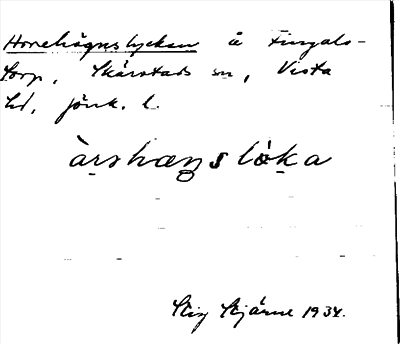 Horshögnslyckan å Fingals-
torp, Skärstads sn, Vista
hd, Jönk. l.
àrshægslòka
Stig Stjärne 1934.